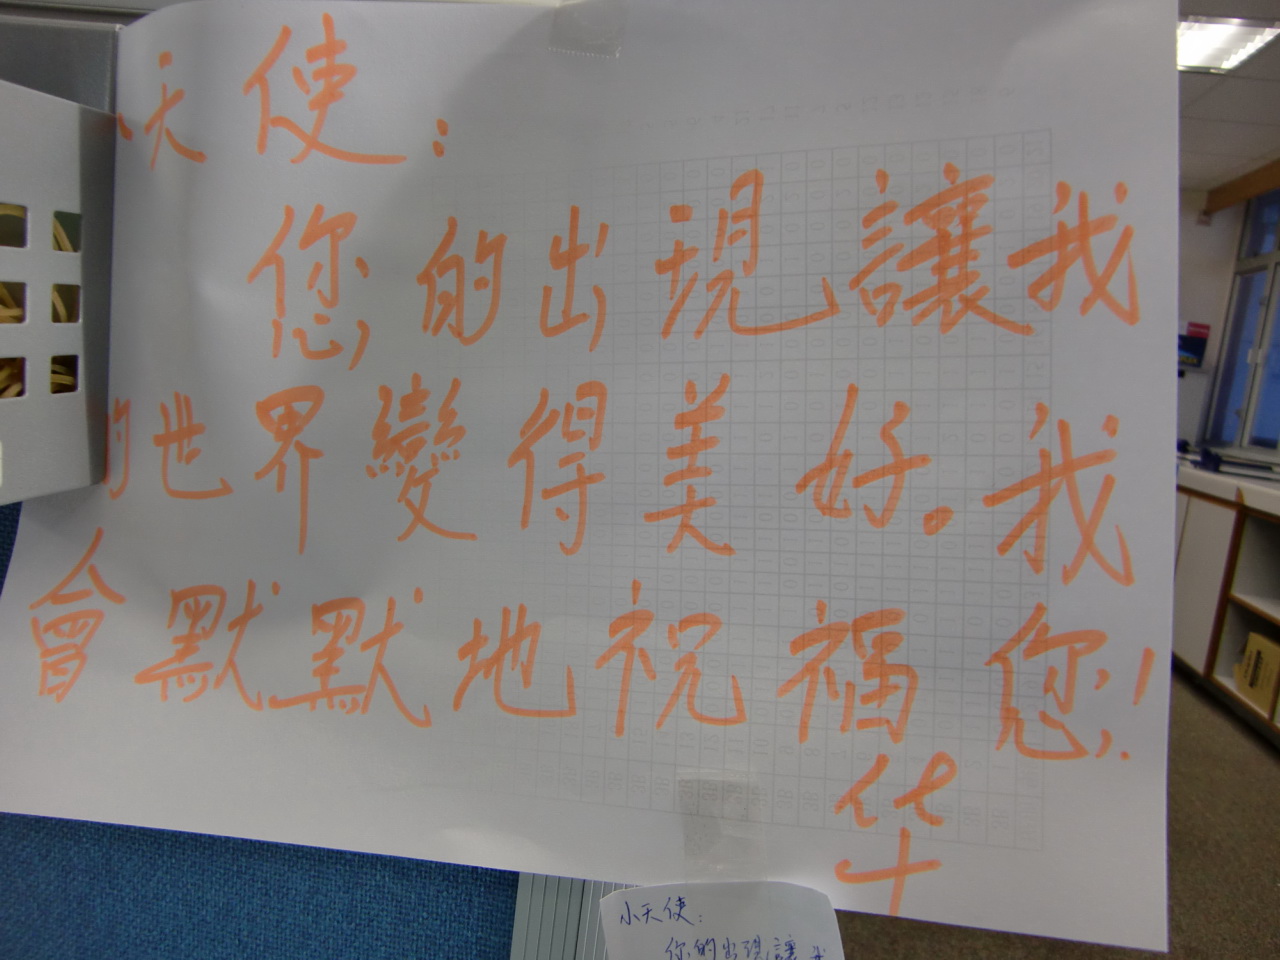 小天使：
您的出現讓我
的世界變得美好。我
會默默地祝福您！
华
小天使：
你的出現讓我